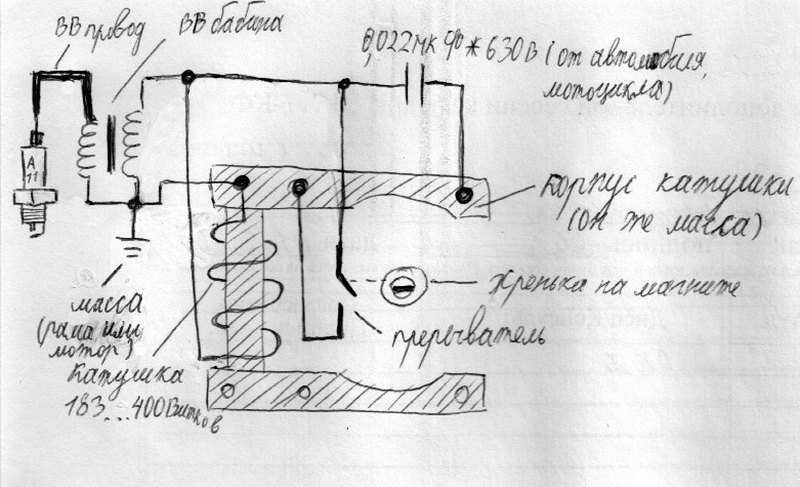 ВВ провод
ВВ бабина
0,022мк Ф * 630В (от автомобиля,
мотоцикла)
А
11
корпус катушки
(он же масса)
хренька на магните
прерыватель
масса
(рама или
мотор)
Катушка
183...400Витков